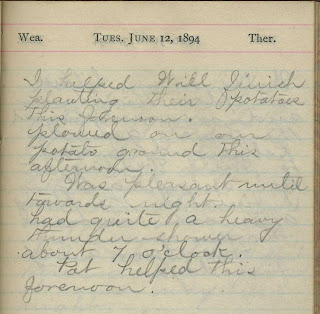 Wea. TUES. JUNE 12, 1894 Ther.
I helped Will
planting their potatoes
this forenoon.
plowed on our
potato ground this
afternoon.
Was pleasant until
towards night.
had quite a heavy
thunder shower
about 7 o'clock.
Pat helped this
forenoon.